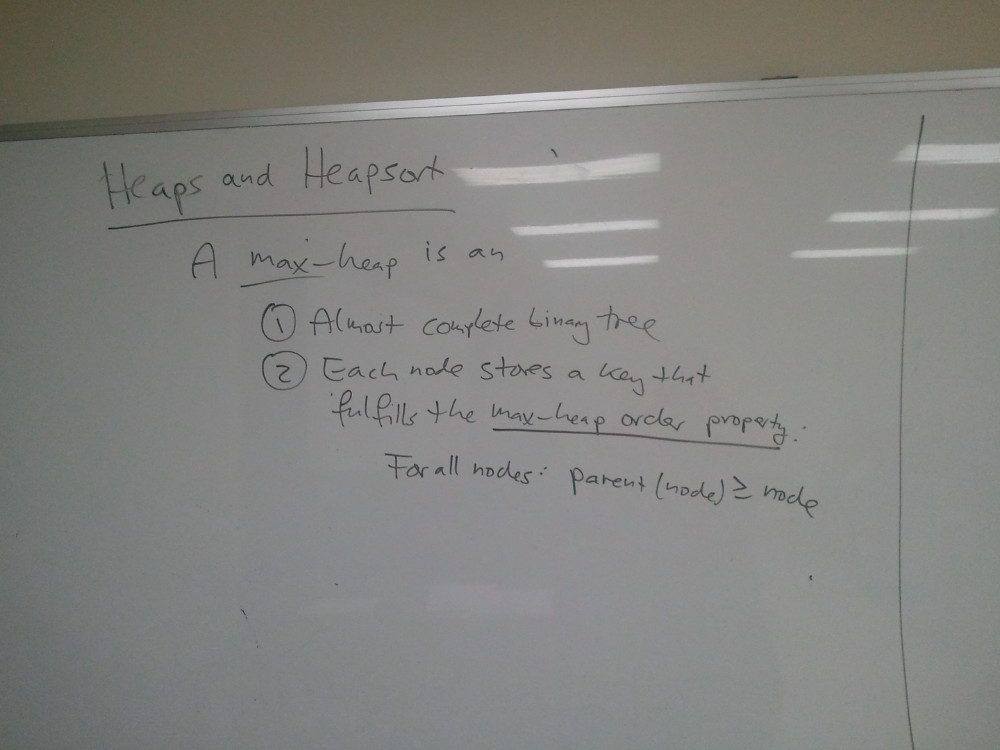 Heaps and Heapsort
A max-heap is an
① Almost complete binary tree
② Each node stores a key that
fulfills the max-heap order property:
For all nodes: parent (node) ≥ node